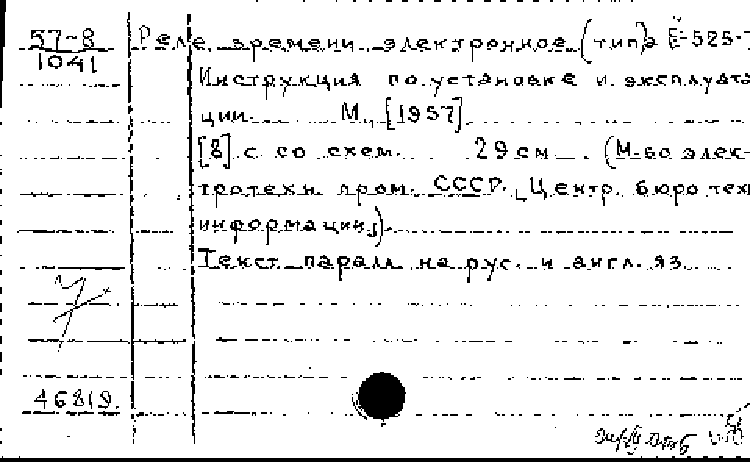 57-8
1041
Реле времени электронное (типа Е-525-
Инструкция по установке и эксплуата
ции. М., [1957].
[8] с со схем. 29 см. (М-во элек-
тротехн. пром. СССР. Центр. бюро тех
информации).
Текст паралл. на рус. и англ. яз.
46819.